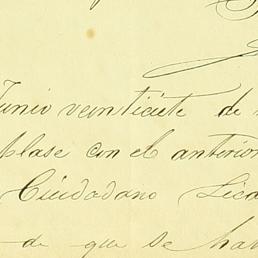 Junio veintisiete de
plase con el anterior
Ciudadano Lica
de que se ha